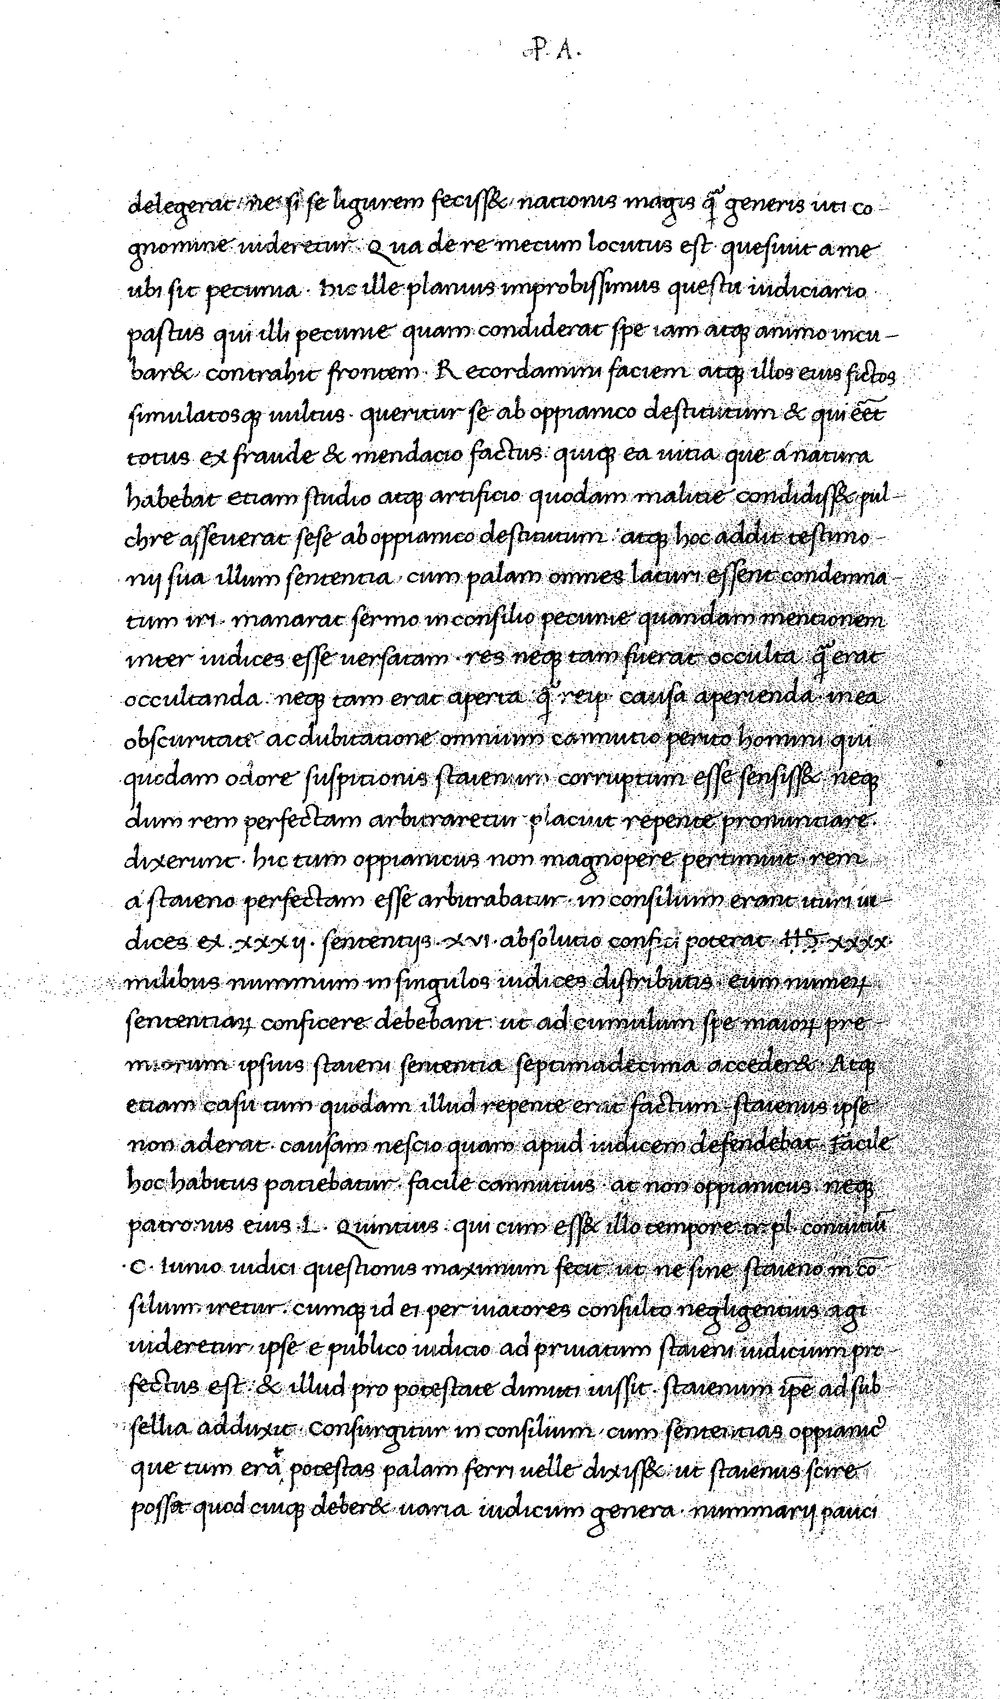 P. A.
delegerat ne si se ligurem feciss& nationis magis q̃ generis uti co-
gnomine uideretur. Qua de re mecum locutus est quesiuit a me
ubi sit pecunia. hic ille planius improbissimus questu iudiciario
pastus qui illi pecunie quam condiderat spe iam atq; animo incu-
bar& contrahit frontem. Recordamini faciem atq; illos eius fictos
simulatosq; uultus. queritur se ab oppianico destitutum & qui eēt
totus ex fraude & mendacio factus. quiq; ea uitia que a natura
habebat etiam studio atq; artificio quodam malitie condidiss& pul-
chre asseuerat sese ab oppianico destitutum. atq; hoc addit testimo-
nij sua illum sententia. cum palam omnes laturi essent condemna-
tum iri. manarat sermo in consilio pecunie quandam mentionem
inter iudices esse uersatam. res neq; tam fuerat occulta q̃ erat
occultanda. neq; tam erat aperta q̃ reip. causa aperienda. in ea
obscuritate ac dubitatione omnium cannutio perito homini qui
quodam odore suspitionis staienum corruptum esse sensiss& neq;
dum rem perfectam arbitraretur placuit repente pronuntiare.
dixerunt. hic tum oppianicus non magnopere pertimuit. rem
a staieno perfectam esse arbitrabatur. in consilium erant ituri iu-
dices ex .xxxij. sententijs .xvi. absolutio confici poterat. HS. xxxx.
milibus nummum in singulos iudices distributis. eum numeꝝ
sententiaꝝ conficere debebant. ut ad cumulum spe maioꝝ pre-
miorum ipsius staieni sententia septimadecima acceder& Atq;
etiam casu tum quodam illud repente erat factum. staienus ipse
non aderat. causam nescio quam apud iudicem defendebat. facile
hoc habitus patiebatur. facile cannutius. at non oppianicus. neq;
patronus eius .L. Quintius. qui cum ess& illo tempore tr. pl. conuitiū
.C. Iunio iudici questionis maximum fecit. ut ne sine staieno in cō
silium iretur. cumq; id ei per uiatores consulto negligentius agi
uideretur. ipse e publico iudicio ad priuatum staieni iudicium pro-
fectus est. & illud pro potestate dimitti iussit. staienum ip̄e ad sub-
sellia adduxit. Consurgitur in consilium. cum sententias oppianicꝰ
que tum erat potestas palam ferri uelle dixiss& ut staienus scire
possit quod cuiq; deber& uaria iudicum genera. nummarij pauci